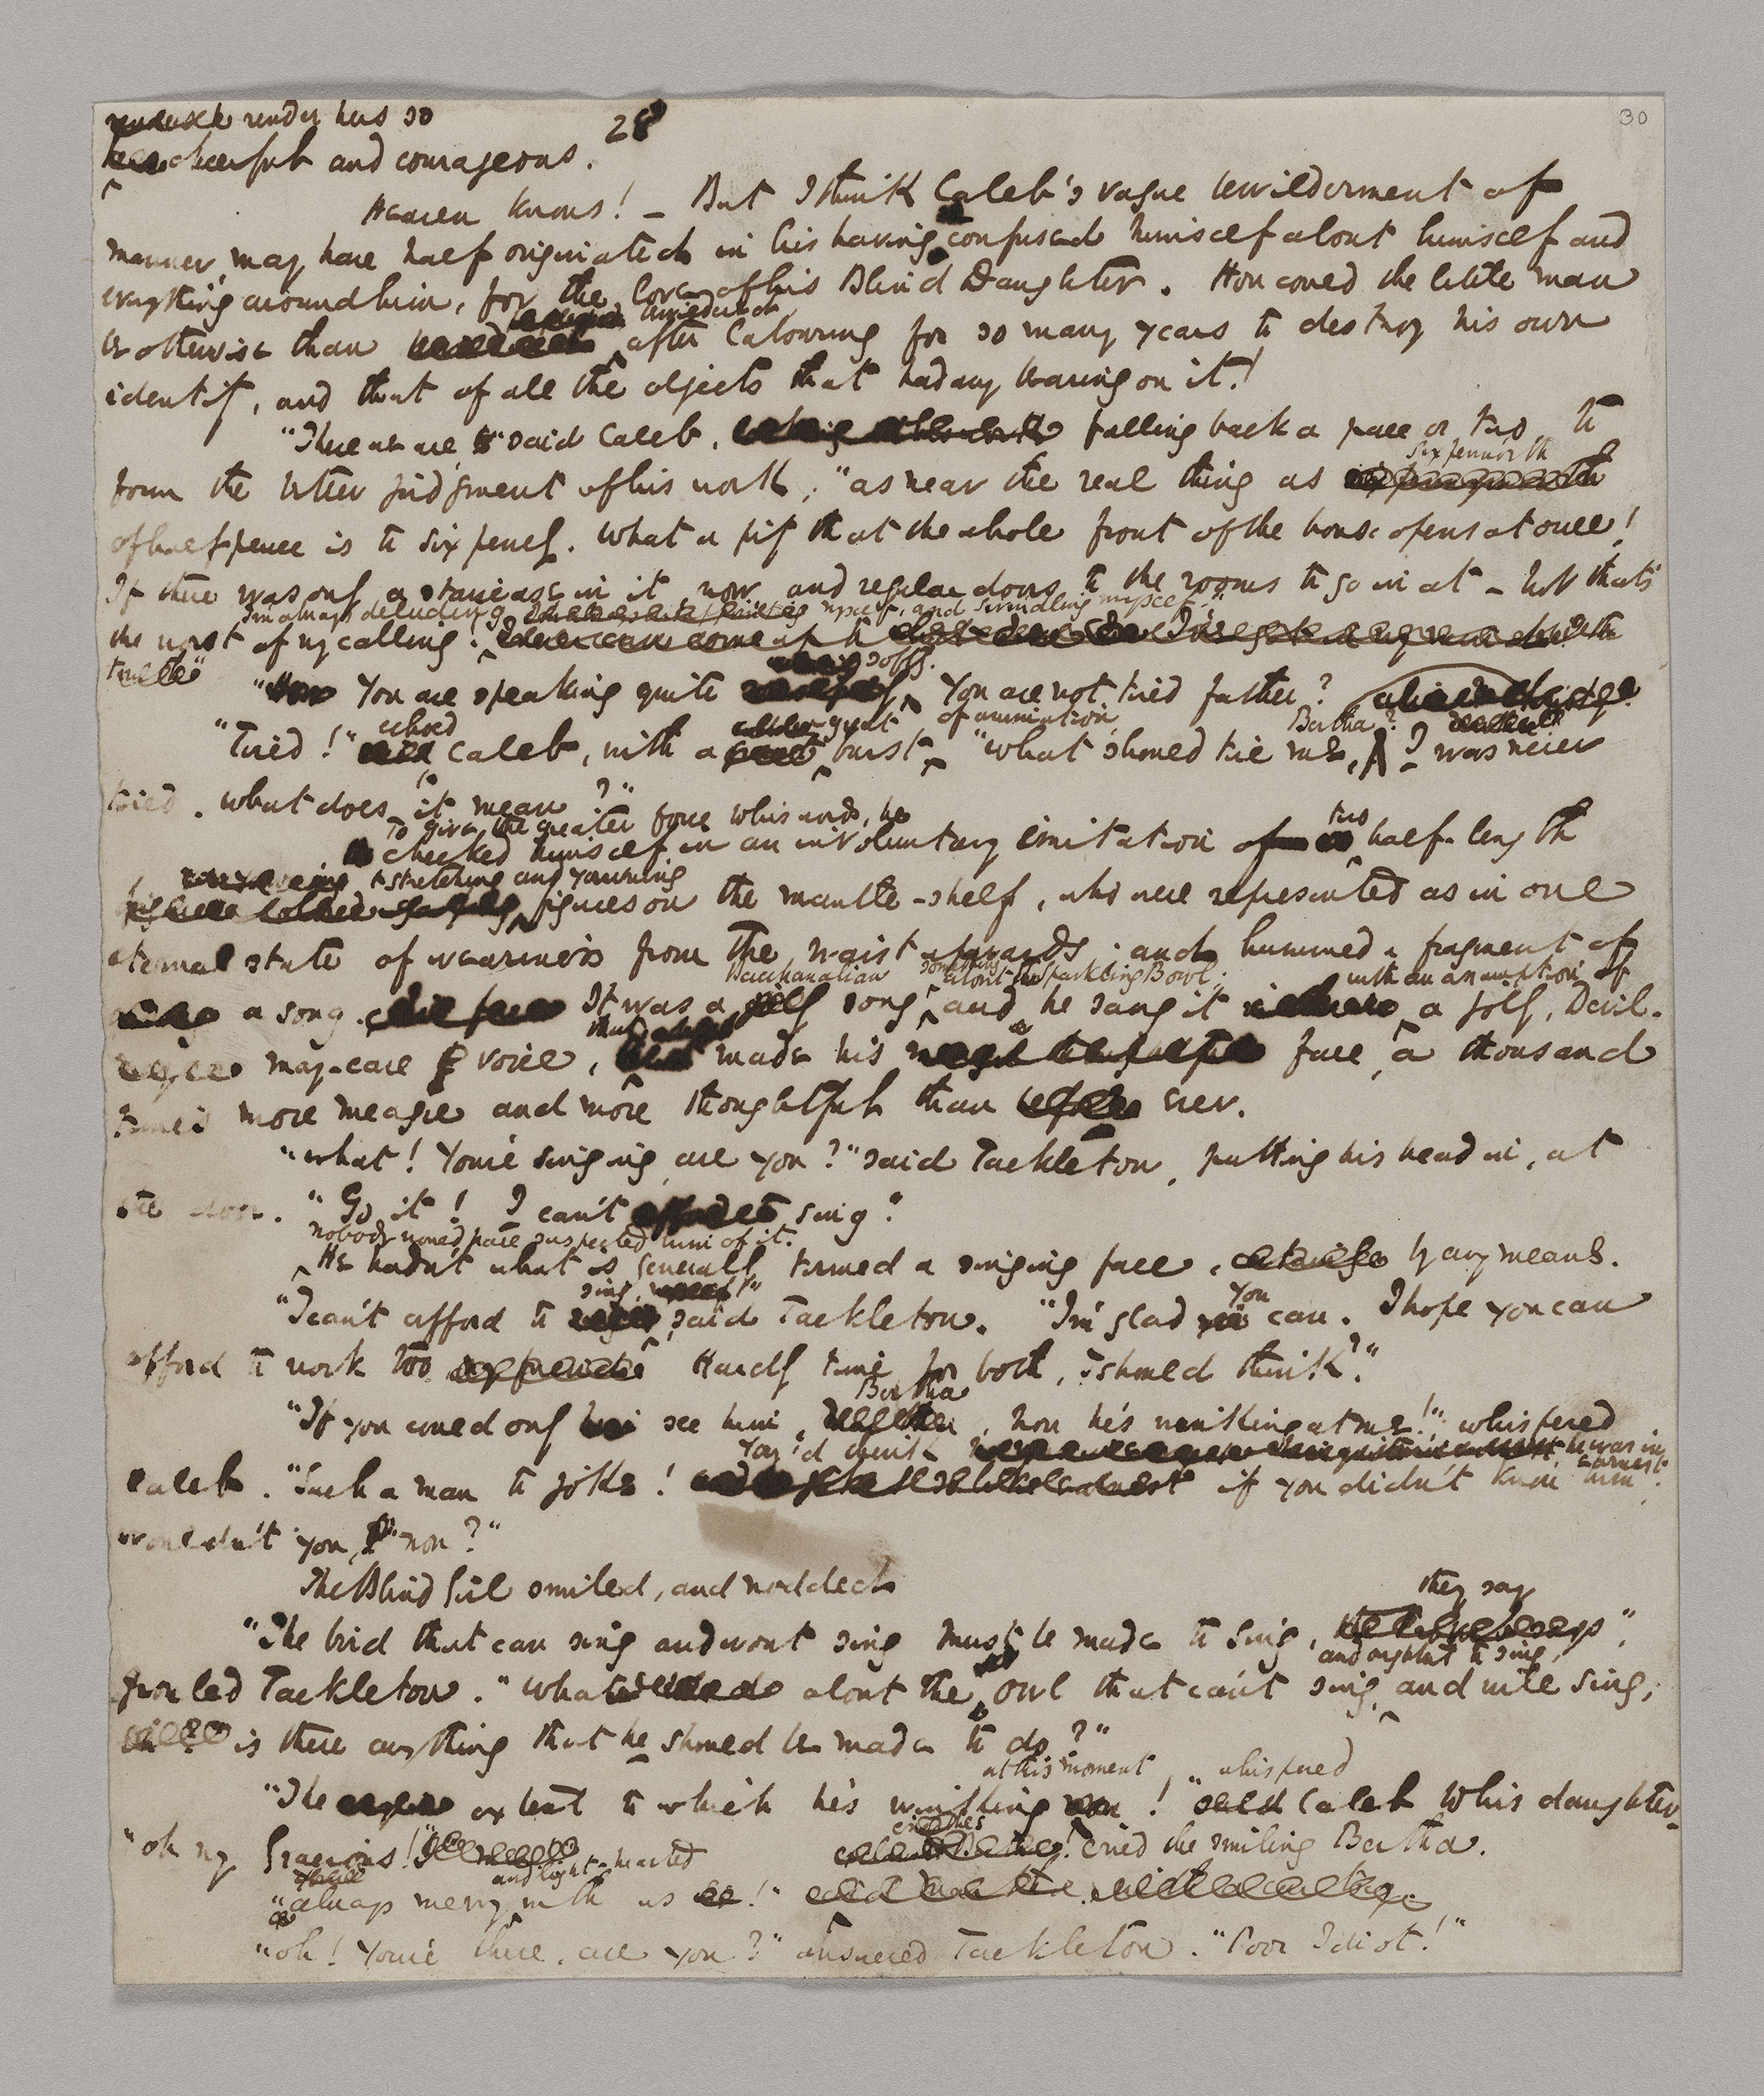 render her so
28
30
cheerful and courageous.
Heaven knows! – But I think Caleb's vague bewilderment of
manner, may have half originated in his having confused himself about himself and
everything around him, for the love of his Blind Daughter. How could the little man
bewildered,
be otherwise than after labouring for so many years to destroy his own
identity, and that of all the objects that had any bearing on it!
"There we are" said Caleb, falling back a pace or two to
sixpenn'orth
form the better judgment of his work; "as near the real thing as
of halfpence is to sixpence. What a pity that the whole front of the house opens at once!
If there was only a staircase in it, now, and regular doors to the rooms to go in at – but that's
I'm always deluding myself, and swindling myself."
the worst of my calling!
softly.
"You are speaking quite You are not tired father?
echoed great of animation, Bertha?
"Tired!" Caleb, with a burst "what should tire me, I was never
tired. What does it mean?"
To give the greater force to his words, he
two
checked himself in an involuntary imitation of half-length
stretching and yawning
figures on the mantle-shelf, who were represented as in one
eternal state of weariness from the waist upwards; and hummed a fragment of
Bacchanalian something about a Sparkling Bowl; with an assumption of
a song. It was a song, and he sang it a jolly, Devil-
that
may-care voice, made his face a thousand
times more meagre and more thoughtful than ever.
"What! You're singing, are you?" said Tackleton, putting his head in, at
the door. "Go it! I can't sing."
nobody would have suspected him of it.
He hadn't what is generally termed a singing face, by any means.
sing," you
"I can't afford to said Tackleton. "I'm glad can. I hope you can
afford to work too Hardly time for both, I should think?"
Bertha
"If you could only see him, how he's winking at me!" whispered
You'd think he was in
earnest
Caleb. "Such a man to joke! if you didn't know him,
wouldn't you, now?"
The Blind Girl smiled, and nodded
they say
"The bird that can sing and won't sing must be made to sing,"
and oughtn't to sing,
growled Tackleton. "What about the owl that can't sing, and will sing;
is there anything that he should be made to do?"
at this moment whispered
"The extent to which he's winking!" Caleb to his daughter.
"oh my Gracious!" cried the smiling Bertha.
and light-hearted
"always merry with us!"
"oh! You're there, are you?" answered Tackleton. "Poor Idiot!"